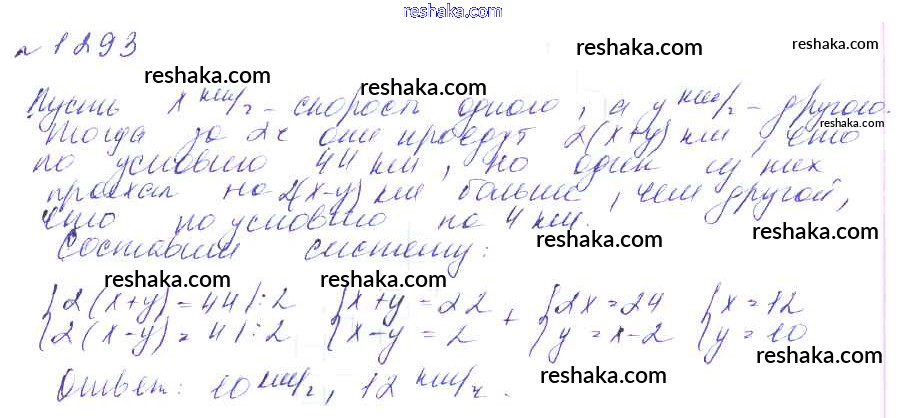 reshaka.com
№ 1293
reshaka.com reshaka.com
reshaka.com
reshaka.com
Пусть x км/ч – скорость одного, а y км/ч – другого.
reshaka.com
Тогда за 2ч они проедут 2(x+y) км, что
по условию 44 км, но один из них
reshaka.com reshaka.com
проехал на 2(x-y) км больше, чем другой,
что по условию на 4 км.
reshaka.com reshaka.com
Составим систему:
reshaka.com reshaka.com
{2(x+y)=44|:2 {x+y=22 + {2x=24 {x=12
{2(x-y)=4|:2 {x-y=2 {y=x-2 {y=10
reshaka.com reshaka.com
Ответ: 10 км/ч, 12 км/ч.
reshaka.com
reshaka.com